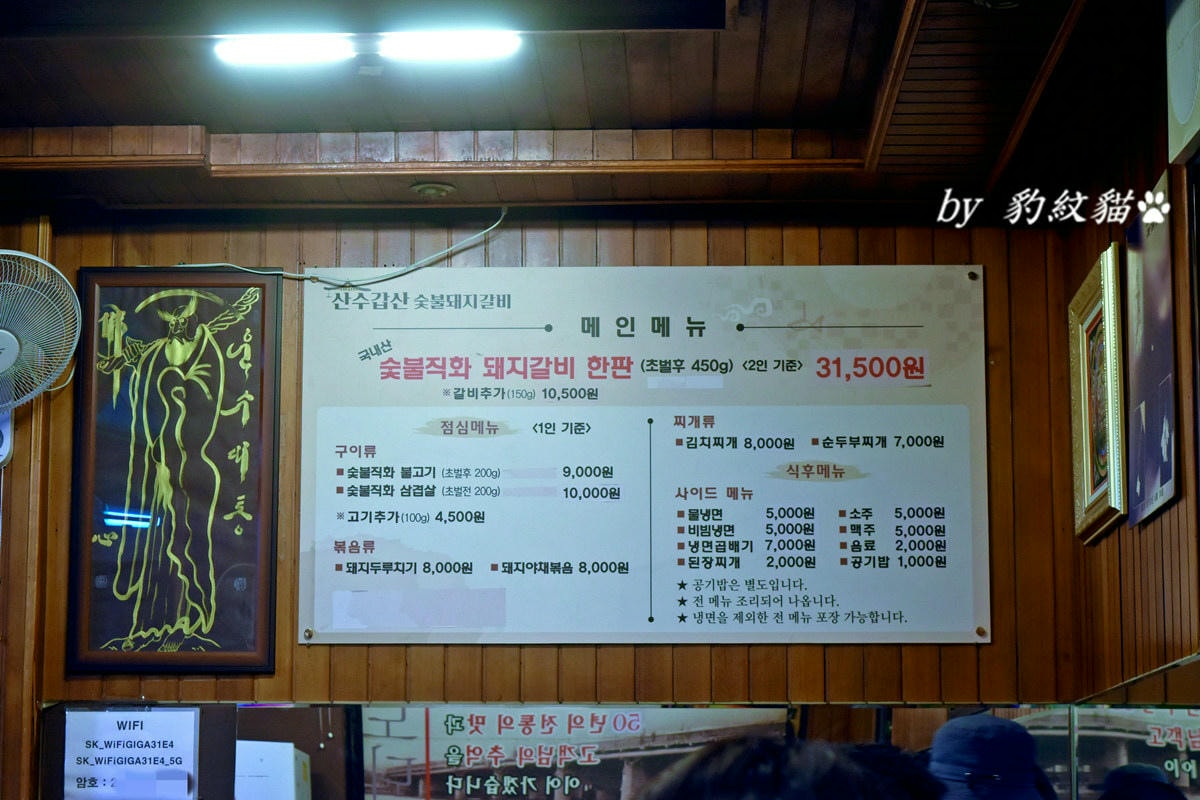 by 豹紋貓
산수갑산 숯불돼지갈비
메인메뉴
국내산
숯불직화 돼지갈비 한판 (초벌후 450g) <2인 기준> 31,500원
※갈비추가(150g) 10,500원
점심메뉴 <1인 기준>
구이류
■숯불직화 불고기 (초벌후 200g) 9,000원
■숯불직화 삼겹살 (초벌전 200g) 10,000원
※고기추가(100g) 4,500원
볶음류
■돼지두루치기 8,000원 ■돼지야채볶음 8,000원
찌개류
■김치찌개 8,000원 ■순두부찌개 7,000원
식후메뉴
사이드 메뉴
■물냉면 5,000원 ■소주 5,000원
■비빔냉면 5,000원 ■맥주 5,000원
■냉면곱배기 7,000원 ■음료 2,000원
■된장찌개 2,000원 ■공기밥 1,000원
★ 공기밥은 별도입니다.
★ 전 메뉴 조리되어 나옵니다.
★ 냉면을 제외한 전 메뉴 포장 가능합니다.
운수대통
心
WIFI
SK_WiFiGIGA31E4
SK_WiFiGIGA31E4_5G
암호 : 2
50년의 전통의 맛과
고객님의 추억을
이어가겠습니다